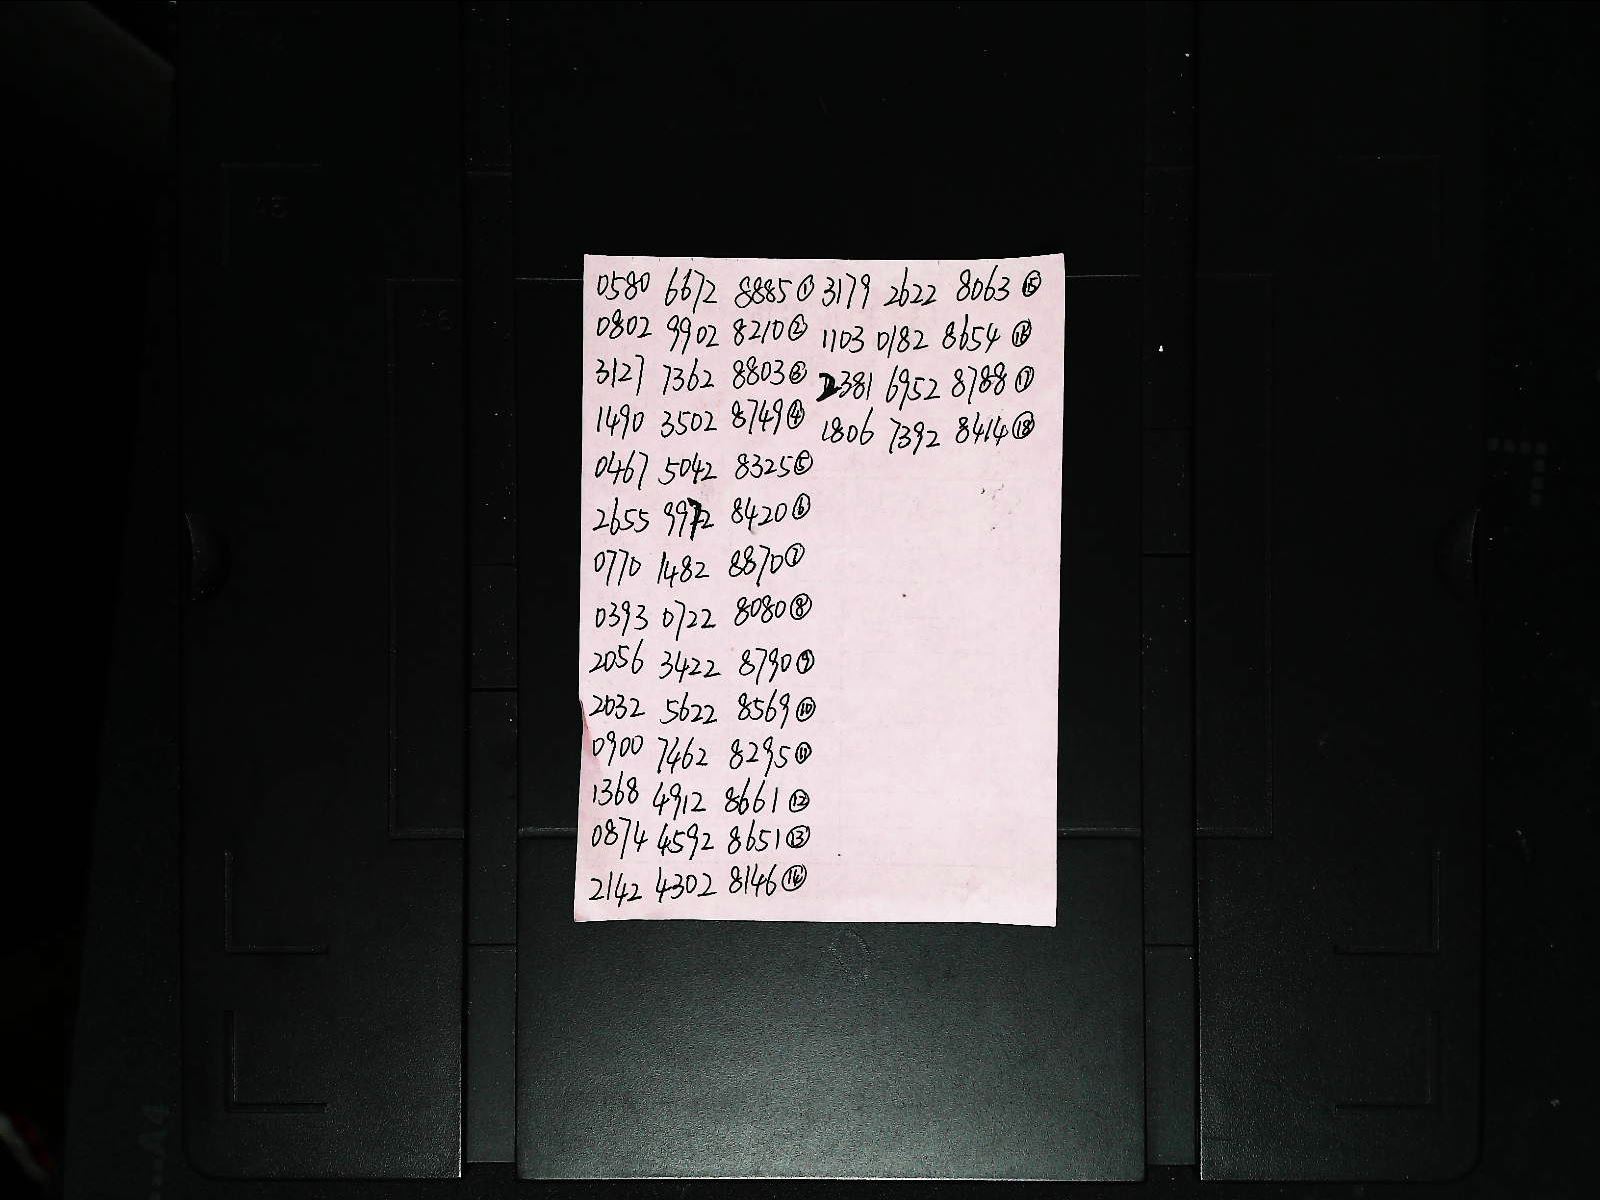 0580 6672 8885 ①
0802 9902 8210 ②
3127 7362 8803 ③
1490 3502 8749 ④
0467 5042 8325 ⑤
2655 9972 8420 ⑥
0770 1482 8870 ⑦
0393 0722 8080 ⑧
2056 3422 8790 ⑨
2032 5622 8569 ⑩
0900 7462 8295 ⑪
1368 4912 8661 ⑫
0874 4592 8651 ⑬
2142 4302 8146 ⑭
3179 2622 8063 ⑮
1103 0182 8654 ⑯
2381 6952 8788 ⑰
1806 7392 8414 ⑱